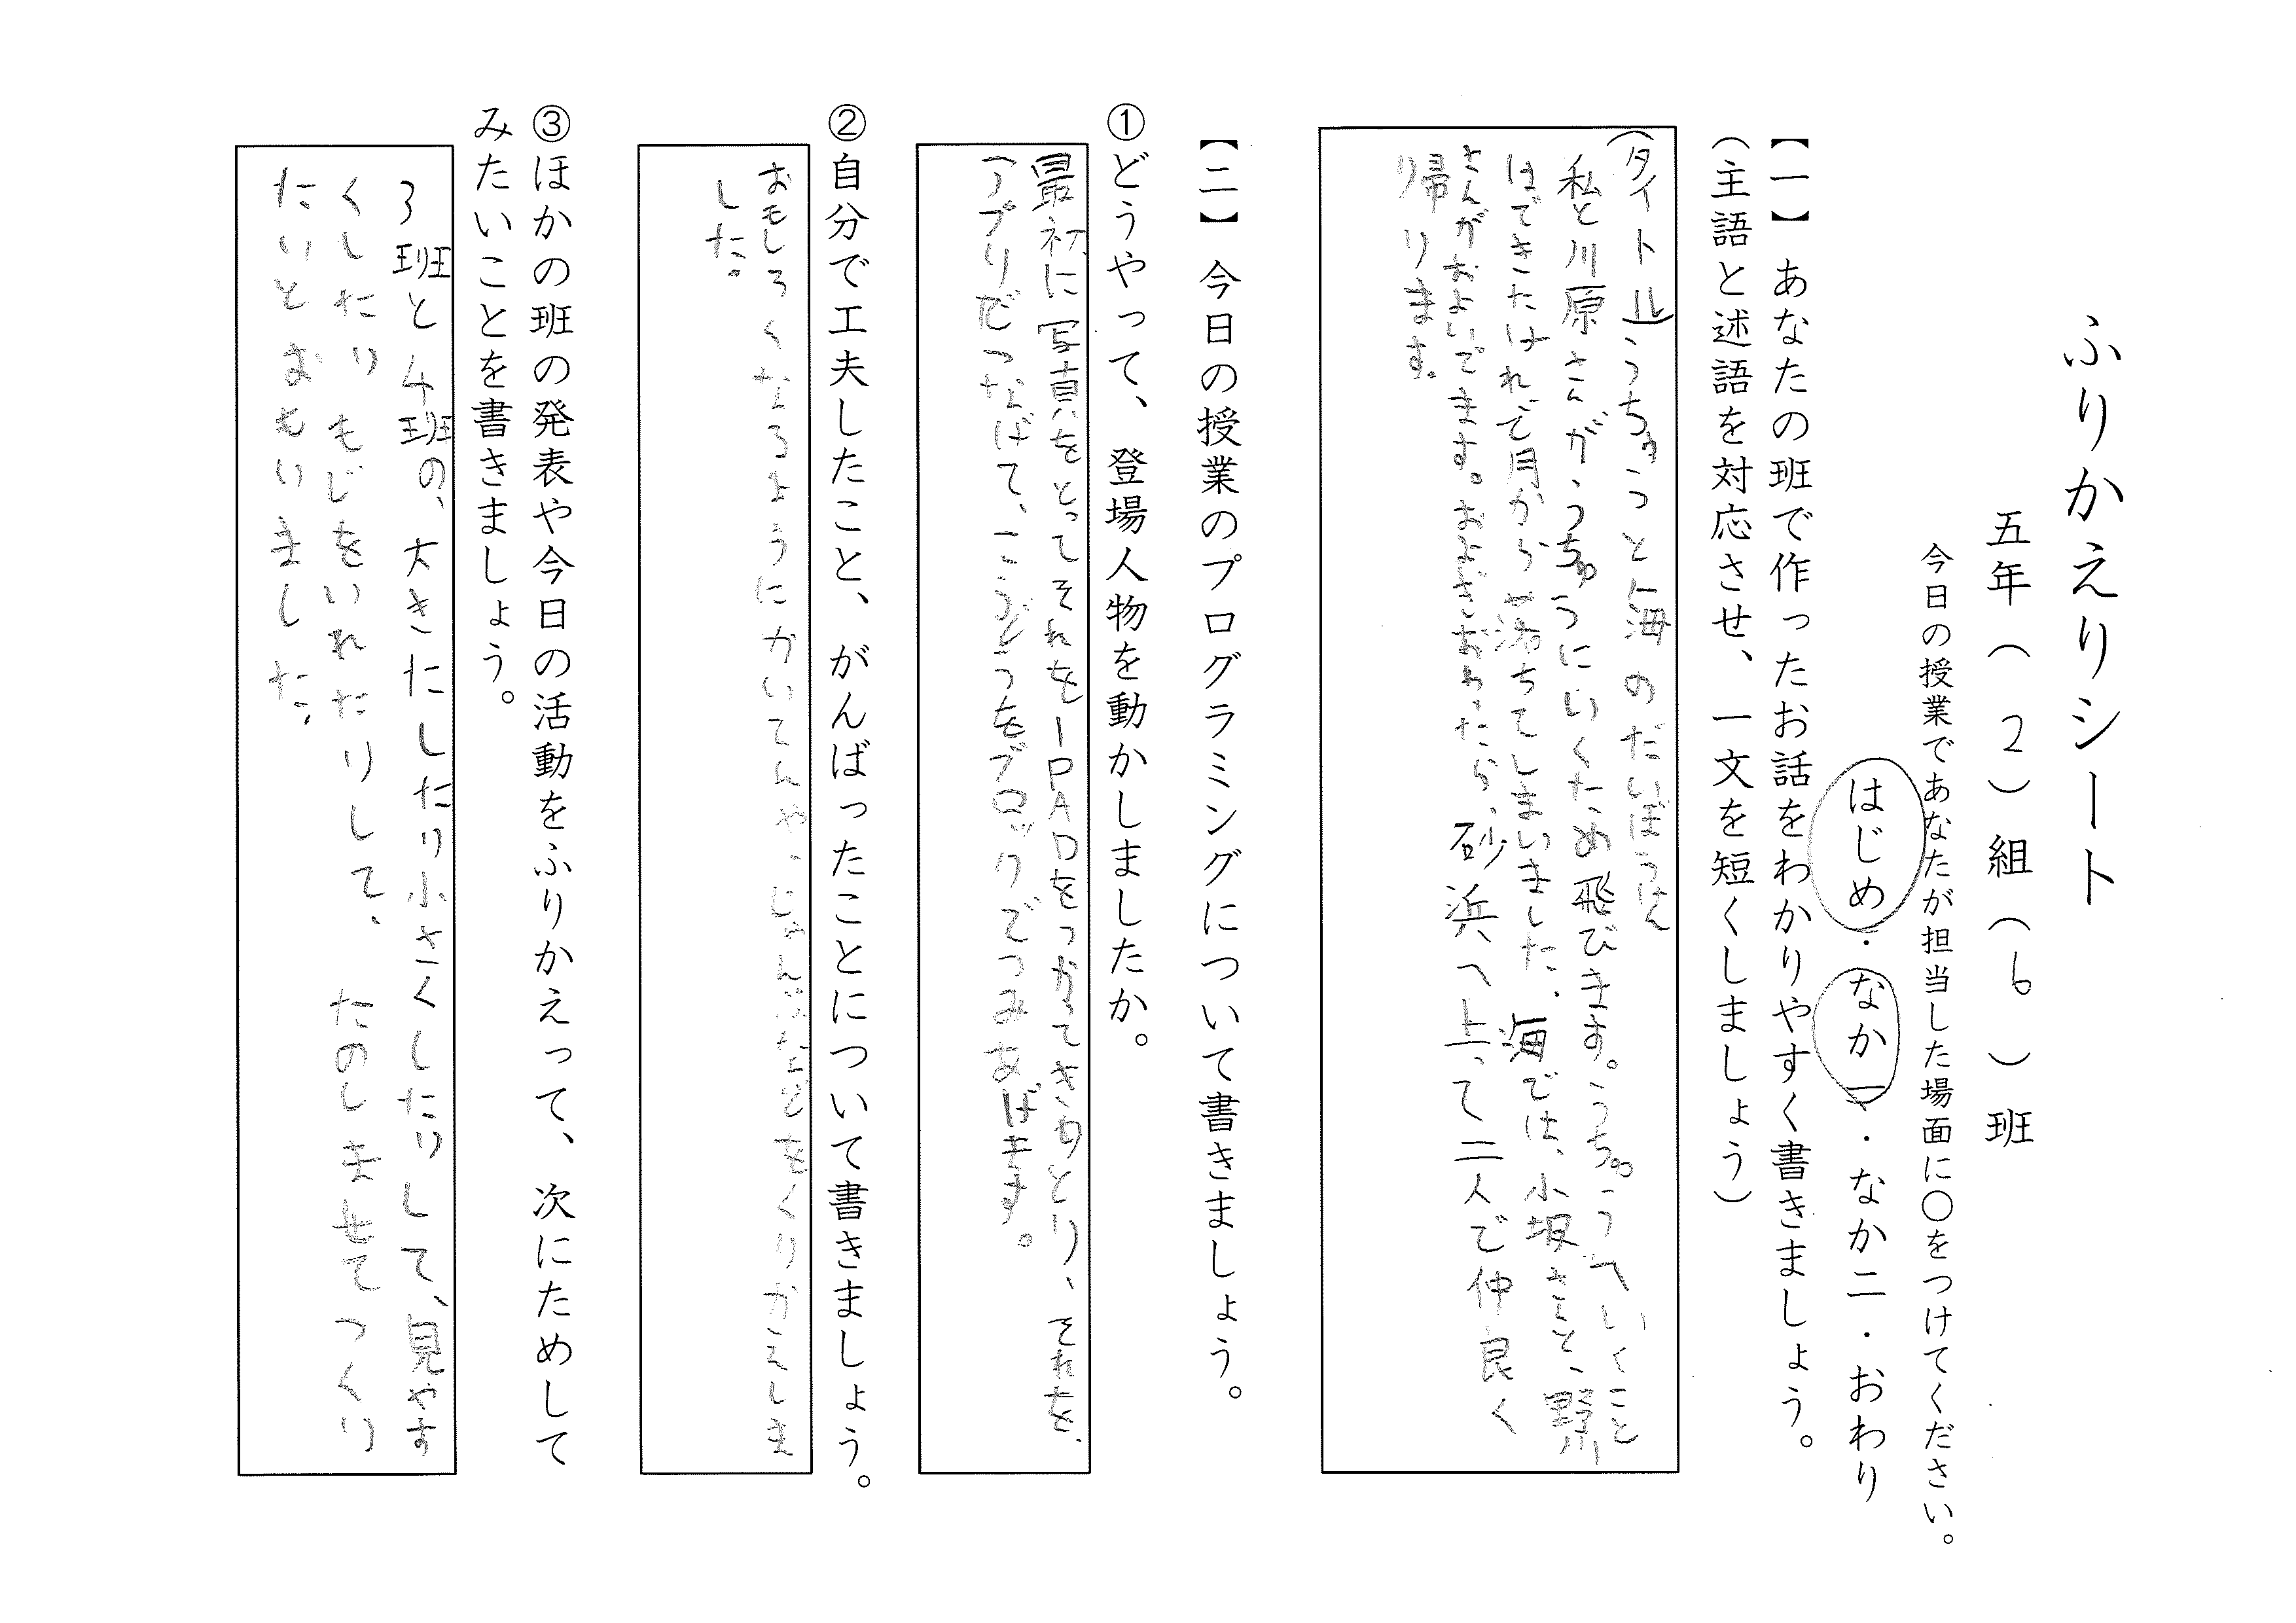 ふりかえりシート
五年（２）組（６）班
今日の授業であなたが担当した場面に〇をつけてください。
はじめ・なか一・なか二・おわり
【一】あなたの班で作ったお話をわかりやすく書きましょう。
（主語と述語を対応させ、一文を短くしましょう）
（タイトル）うちゅうと海のだいぼうけん
私と川原さんが、うちゅうにいくため飛びます。うちゅうへいくこと
はできたけれど月から落ちてしまいました。海では、小坂さんと、野川
さんがおよいでます。およぎおわったら、砂浜へ上って二人で仲良く
帰ります。
【二】今日の授業のプログラミングについて書きましょう。
①どうやって、登場人物を動かしましたか。
最初に写真をとってそれをIPADをつかってきりとり、それを、
アプリだつなげて、こうどうをブロックでつみあげます。
②自分で工夫したこと、がんばったことについて書きましょう。
おもしろくなるようにかいてんや、じゃんぷなどをくりかえしま
した。
③ほかの班の発表や今日の活動をふりかえって、次にためして
みたいことを書きましょう。
３班と４班の、大きたしたり小さくしたりして、見やす
くしたりもじをいれたりして、たのしませてつくり
たいとおもいました。